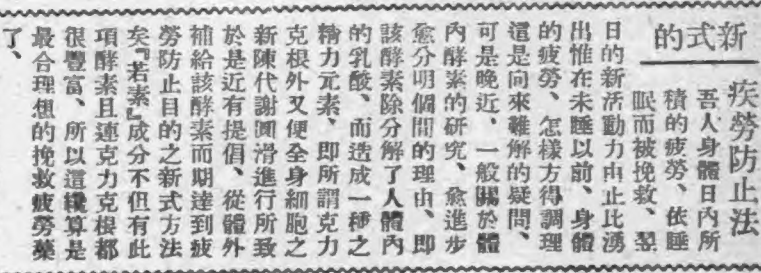 新式的
疾勞防止法
吾人身體日內所
積的疲勞、依睡
眠而被挽救、翌
日的新活動力由止比湧
出惟在未睡以前、身體
的疲勞、怎樣方得調理
這是向來難解的疑問、
可是晚近、一般關於體
內酵素的研究、愈進步
愈分明個間的理由、即
該酵素除分解了人體內
的乳酸、而造成一種之
精力元素、即所謂克力
克根外又使全身細胞之
新陳代謝圓滑進行所致
於是近有提倡、從體外
補給該酵素而期達到疲
勞防止目的之新式方法
矣『若素』成分不但有此
項酵素且連克力克根都
很豐富、所以這纔算是
最合理想的挽救疲勞藥
了、